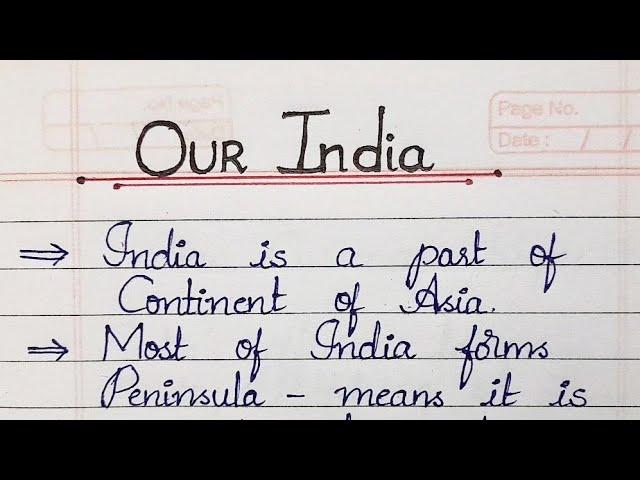 Page No.
Date : / /
OUR India
⇒ India is a part of
Continent of Asia.
⇒ Most of India forms
Peninsula - means it is